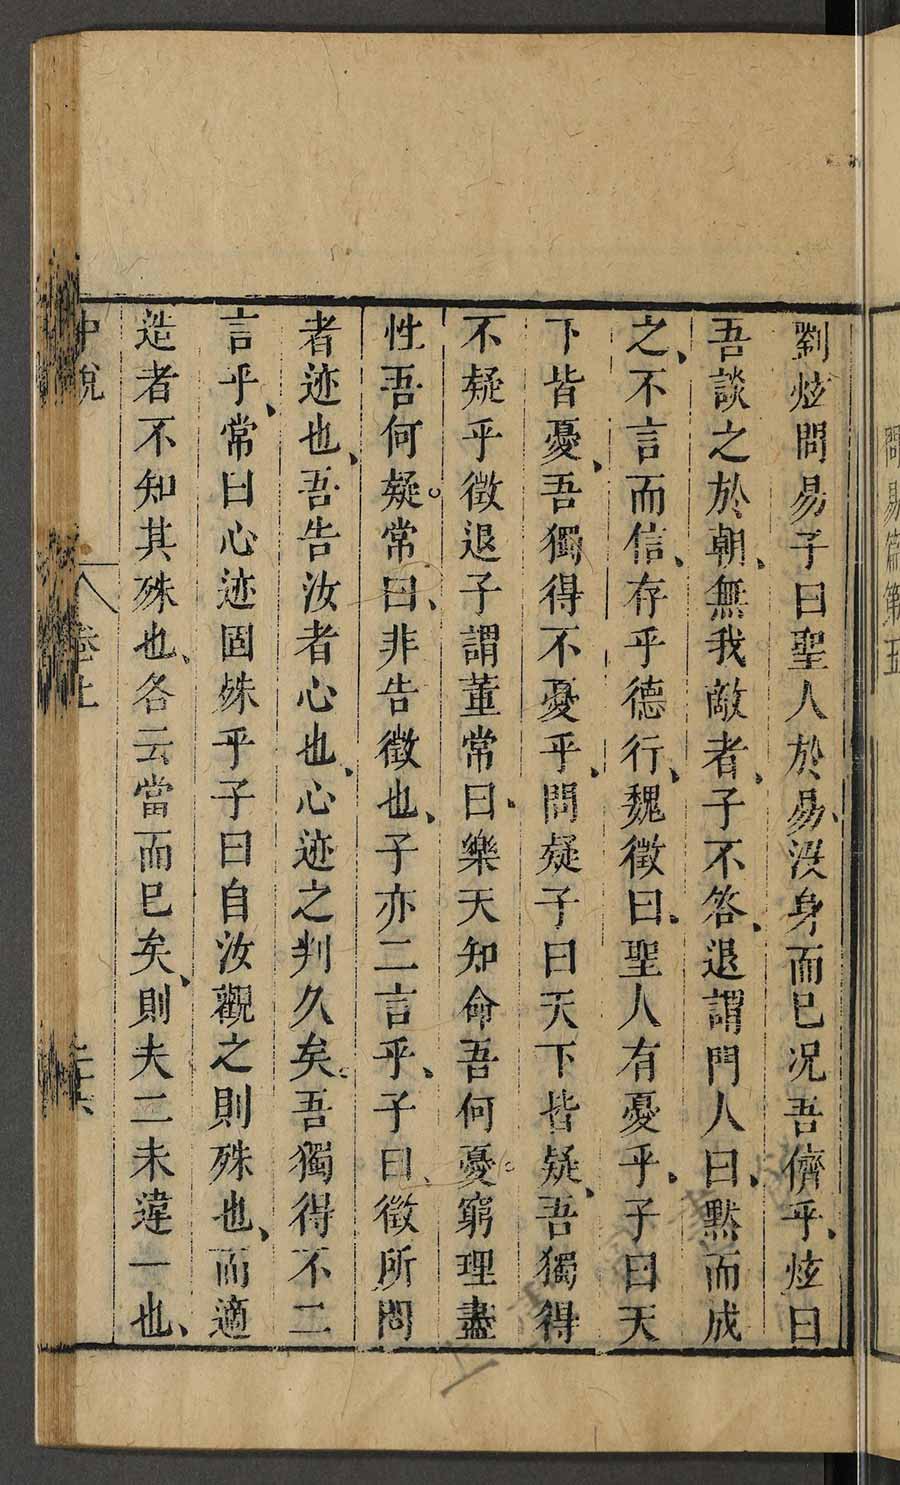 問易篇第五
劉炫問易子曰聖人於易、沒身而已况吾儕乎、炫曰
吾談之於朝、無我敵者、子不答、退謂門人曰、黙而成
之、不言而信、存乎德行、魏徵曰、聖人有憂乎、子曰天
下皆憂、吾獨得不憂乎、問疑子曰天下皆疑、吾獨得
不疑乎徵退子謂董常曰、樂天知命吾何憂窮理盡
性吾何疑。常曰、非告徵也、子亦二言乎、子曰、徵所問
者迹也、吾告汝者心也、心迹之判久矣。吾獨得不二
言乎、常曰心迹固殊乎子曰自汝觀之則殊也、而適
造者不知其殊也、各云當而已矣、則夫二未違一也、
中說
卷上